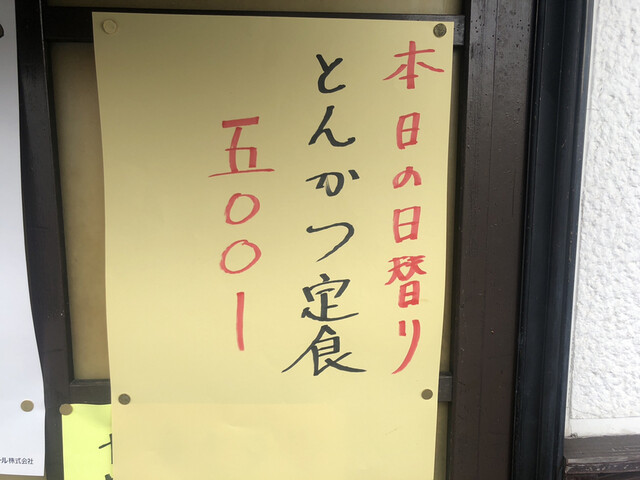 本日の日替り
とんかつ定食
五〇〇ー
ル株式会社